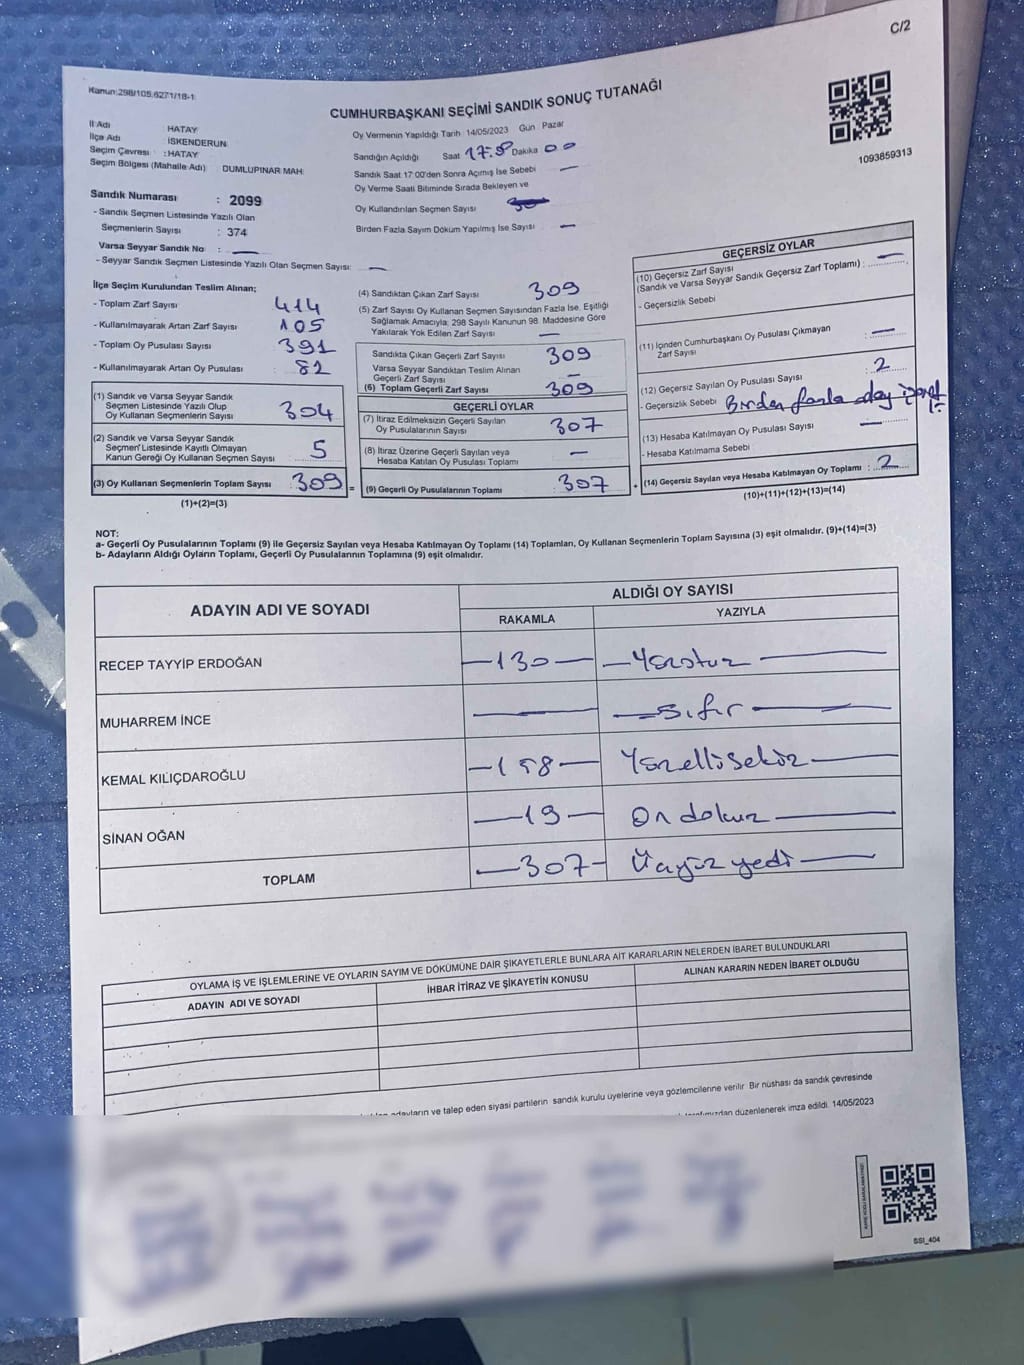 C/2
Kanun:298/105,6271/18-1
CUMHURBAŞKANI SEÇİMİ SANDIK SONUÇ TUTANAĞI
1093859313
İl Adı : HATAY
İlçe Adı : İSKENDERUN
Seçim Çevresi : HATAY
Seçim Bölgesi (Mahalle Adı) : DUMLUPINAR MAH.
Sandık Numarası : 2099
- Sandık Seçmen Listesinde Yazılı Olan
Seçmenlerin Sayısı : 374
Varsa Seyyar Sandık No : —
- Seyyar Sandık Seçmen Listesinde Yazılı Olan Seçmen Sayısı: —
Oy Vermenin Yapıldığı Tarih 14/05/2023 Gün Pazar
Sandığın Açıldığı Saat Dakika 00
Sandık Saat 17:00'den Sonra Açımış İse Sebebi —
Oy Verme Saati Bitiminde Sırada Bekleyen ve
Oy Kullandırılan Seçmen Sayısı
Birden Fazla Sayım Döküm Yapılmış İse Sayısı —
İlçe Seçim Kurulundan Teslim Alınan;
- Toplam Zarf Sayısı : 414
- Kullanılmayarak Artan Zarf Sayısı : 105
- Toplam Oy Pusulası Sayısı : 391
- Kullanılmayarak Artan Oy Pusulası : 82
(1) Sandık ve Varsa Seyyar Sandık
Seçmen Listesinde Yazılı Olup
Oy Kullanan Seçmenlerin Sayısı : 304
(2) Sandık ve Varsa Seyyar Sandık
Seçmen Listesinde Kayıtlı Olmayan
Kanun Gereği Oy Kullanan Seçmen Sayısı : 5
(3) Oy Kullanan Seçmenlerin Toplam Sayısı : 309 =
(1)+(2)=(3)
(4) Sandıktan Çıkan Zarf Sayısı 309
(5) Zarf Sayısı Oy Kullanan Seçmen Sayısından Fazla İse, Eşitliği
Sağlamak Amacıyla; 298 Sayılı Kanunun 98. Maddesine Göre
Yakılarak Yok Edilen Zarf Sayısı : —
Sandıkta Çıkan Geçerli Zarf Sayısı 309
Varsa Seyyar Sandıktan Teslim Alınan
Geçerli Zarf Sayısı —
(6) Toplam Geçerli Zarf Sayısı 309
GEÇERLİ OYLAR
(7) İtiraz Edilmeksizin Geçerli Sayılan
Oy Pusulalarının Sayısı : 307
(8) İtiraz Üzerine Geçerli Sayılan veya
Hesaba Katılan Oy Pusulası Toplamı : —
(9) Geçerli Oy Pusulalarının Toplamı : 307 +
GEÇERSİZ OYLAR
(10) Geçersiz Zarf Sayısı
(Sandık ve Varsa Seyyar Sandık Geçersiz Zarf Toplamı) : —
- Geçersizlik Sebebi
(11) İçinden Cumhurbaşkanı Oy Pusulası Çıkmayan
Zarf Sayısı : —
(12) Geçersiz Sayılan Oy Pusulası Sayısı : 2
- Geçersizlik Sebebi Birden fazla aday işaret
(13) Hesaba Katılmayan Oy Pusulası Sayısı : —
- Hesaba Katılmama Sebebi
(14) Geçersiz Sayılan veya Hesaba Katılmayan Oy Toplamı : 2
(10)+(11)+(12)+(13)=(14)
NOT:
a- Geçerli Oy Pusulalarının Toplamı (9) ile Geçersiz Sayılan veya Hesaba Katılmayan Oy Toplamı (14) Toplamları, Oy Kullanan Seçmenlerin Toplam Sayısına (3) eşit olmalıdır. (9)+(14)=(3)
b- Adayların Aldığı Oyların Toplamı, Geçerli Oy Pusulalarının Toplamına (9) eşit olmalıdır.
ADAYIN ADI VE SOYADI ALDIĞI OY SAYISI
RAKAMLA YAZIYLA
RECEP TAYYİP ERDOĞAN —130— —Yüzotuz—
MUHARREM İNCE — —sıfır—
KEMAL KILIÇDAROĞLU —158— Yüzellisekiz—
SİNAN OĞAN —19— On dokuz—
TOPLAM —307— Üçyüz yedi—
OYLAMA İŞ VE İŞLEMLERİNE VE OYLARIN SAYIM VE DÖKÜMÜNE DAİR ŞİKAYETLERLE BUNLARA AİT KARARLARIN NELERDEN İBARET BULUNDUKLARI
ADAYIN ADI VE SOYADI İHBAR İTİRAZ VE ŞİKAYETİN KONUSU ALINAN KARARIN NEDEN İBARET OLDUĞU
adayların ve talep eden siyasi partilerin sandık kurulu üyelerine veya gözlemcilerine verilir. Bir nüshası da sandık çevresinde
düzenlenerek imza edildi. 14/05/2023
SSI_404